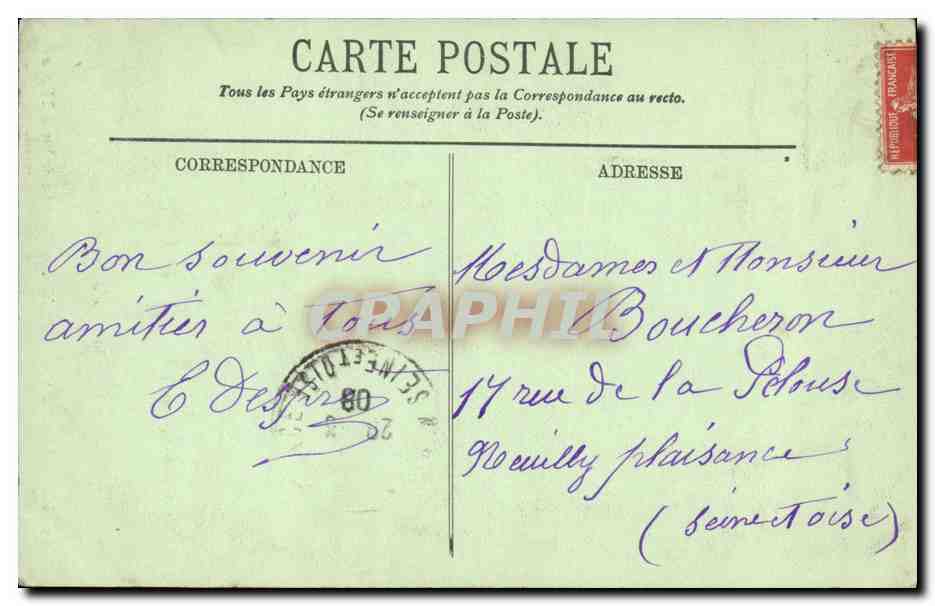 CARTE POSTALE
Tous les Pays étrangers n'acceptent pas la Correspondance au recto.
(Se renseigner à la Poste).
REPUBLIQUE FRANÇAISE
CORRESPONDANCE
ADRESSE
Bon souvenir
amitiés à Tous
E
CRAPHIL
Mesdames et Monsieur
Boucheron
17 rue de la Pelouse
Neuilly plaisance
(seine et oise)
SEINE ET OISE
08